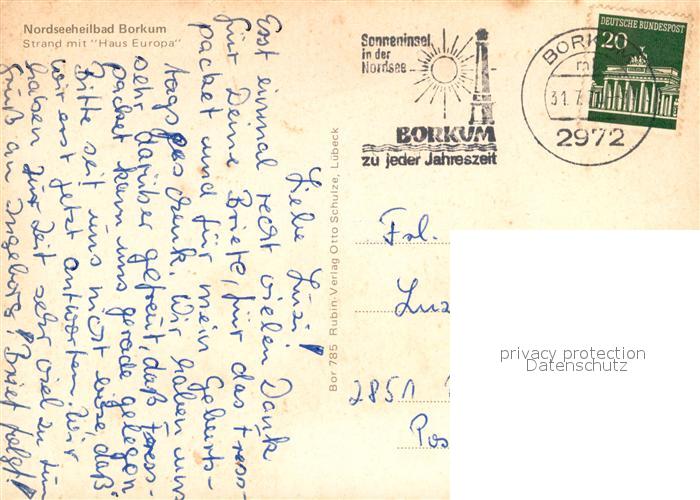 Nordseeheilbad Borkum
Strand mit "Haus Europa"
Sonneninsel
in der
Nordsee
BORKUM
zu jeder Jahreszeit
BORKUM
31.7.
2972
DEUTSCHE BUNDESPOST
20
Liebe Luzi!
Erst einmal recht vielen Dank
für Deine Briefe, für das Fress-
packet und für mein Geburts-
tagsgeschenk. Wir haben uns
sehr darüber gefreut, daß Fress-
packet kam uns gerade gelegen
Bitte seit uns nicht böse, daß
wir erst jetzt antworten. Wir
haben zur Zeit sehr viel zu tun
Gruß an Ingeborg! Brief folgt!
Bor 785 Rubin-Verlag Otto Schulze, Lübeck
Frl.
Luz
2851
Pos
privacy protection
Datenschutz